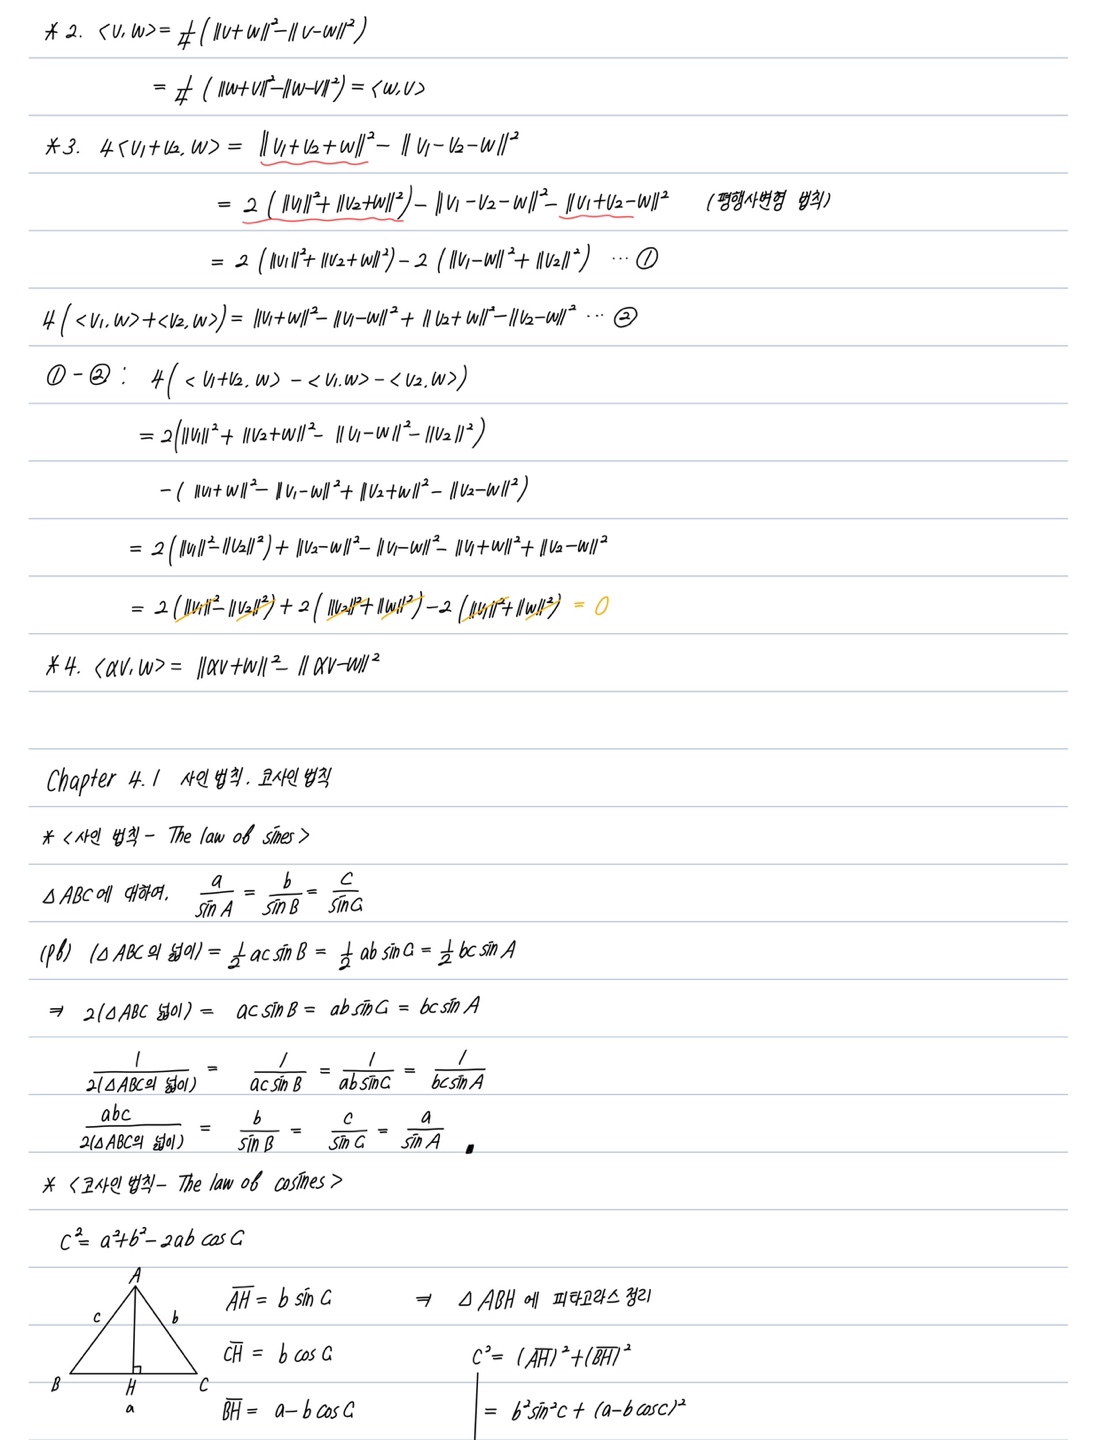 * 2. <v, w> = 1/4 (||v+w||² - ||v-w||²)
= 1/4 (||w+v||² - ||w-v||²) = <w, v>
* 3. 4<v₁+v₂, w> = ||v₁+v₂+w||² - ||v₁-v₂-w||²
= 2(||v₁||² + ||v₂+w||²) - ||v₁-v₂-w||² - ||v₁+v₂-w||² (평행사변형 법칙)
= 2(||v₁||² + ||v₂+w||²) - 2(||v₁-w||² + ||v₂||²) ··· ①
4(<v₁, w> + <v₂, w>) = ||v₁+w||² - ||v₁-w||² + ||v₂+w||² - ||v₂-w||² ··· ②
① - ② : 4(<v₁+v₂, w> - <v₁, w> - <v₂, w>)
= 2(||v₁||² + ||v₂+w||² - ||v₁-w||² - ||v₂||²)
- (||v₁+w||² - ||v₁-w||² + ||v₂+w||² - ||v₂-w||²)
= 2(||v₁||² - ||v₂||²) + ||v₂-w||² - ||v₁-w||² - ||v₁+w||² + ||v₂-w||²
= 2(||v₁||² - ||v₂||²) + 2(||v₂||² + ||w||²) - 2(||v₁||² + ||w||²) = 0
* 4. <αv, w> = ||αv+w||² - ||αv-w||²
Chapter 4.1 사인 법칙, 코사인 법칙
* <사인 법칙 - The law of sines>
△ABC에 대하여, a/sin A = b/sin B = c/sin C
(pf) (△ABC의 넓이) = 1/2 ac sin B = 1/2 ab sin C = 1/2 bc sin A
⇒ 2(△ABC 넓이) = ac sin B = ab sin C = bc sin A
1/2(△ABC의 넓이) = 1/ac sin B = 1/ab sin C = 1/bc sin A
abc/2(△ABC의 넓이) = b/sin B = c/sin C = a/sin A
* <코사인 법칙 - The law of cosines>
c² = a²+b²-2ab cos C
A
c b
B H C
a
A̅H̅ = b sin C ⇒ △ABH에 피타고라스 정리
C̅H̅ = b cos C c² = (A̅H̅)² + (B̅H̅)²
B̅H̅ = a - b cos C = b²sin²c + (a - b cosc)²